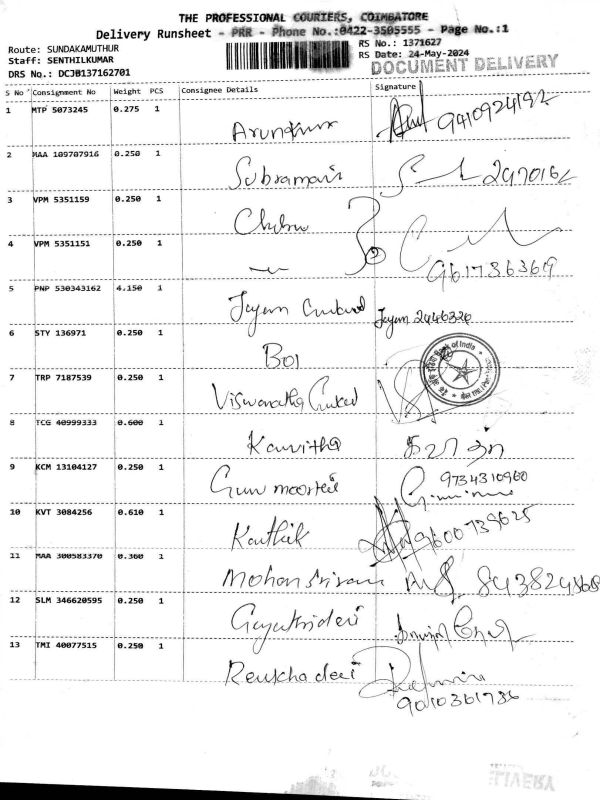 THE PROFESSIONAL COURIERS, COIMBATORE
Delivery Runsheet - PRR - Phone No.:0422-3505555 - Page No.:1
Route: SUNDAKAMUTHUR
Staff: SENTHILKUMAR
DRS No.: DCJB137162701
RS No.: 1371627
RS Date: 24-May-2024
DOCUMENT DELIVERY
S No Consignment No Weight PCS Consignee Details Signature
1 MTP 5073245 0.275 1 Arunkumar 9410924192
2 MAA 109707916 0.250 1 Subramani 2470162
3 VPM 5351159 0.250 1
4 VPM 5351151 0.250 1 961786369
5 PNP 530343162 4.150 1 Jayam Jayam 2446326
6 STY 136971 0.250 1 BOI
Bank of India
7 TRP 7187539 0.250 1 Viswanatha
8 TCG 40999333 0.600 1 Kavitha கவிதா
9 KCM 13104127 0.250 1 9734310960
10 KVT 3084256 0.610 1 Karthik 9600739625
11 MAA 300583370 0.360 1 Mohan
12 SLM 346620595 0.250 1 Gayathridevi
13 TMI 40077515 0.250 1 Renukhadevi
9010361786